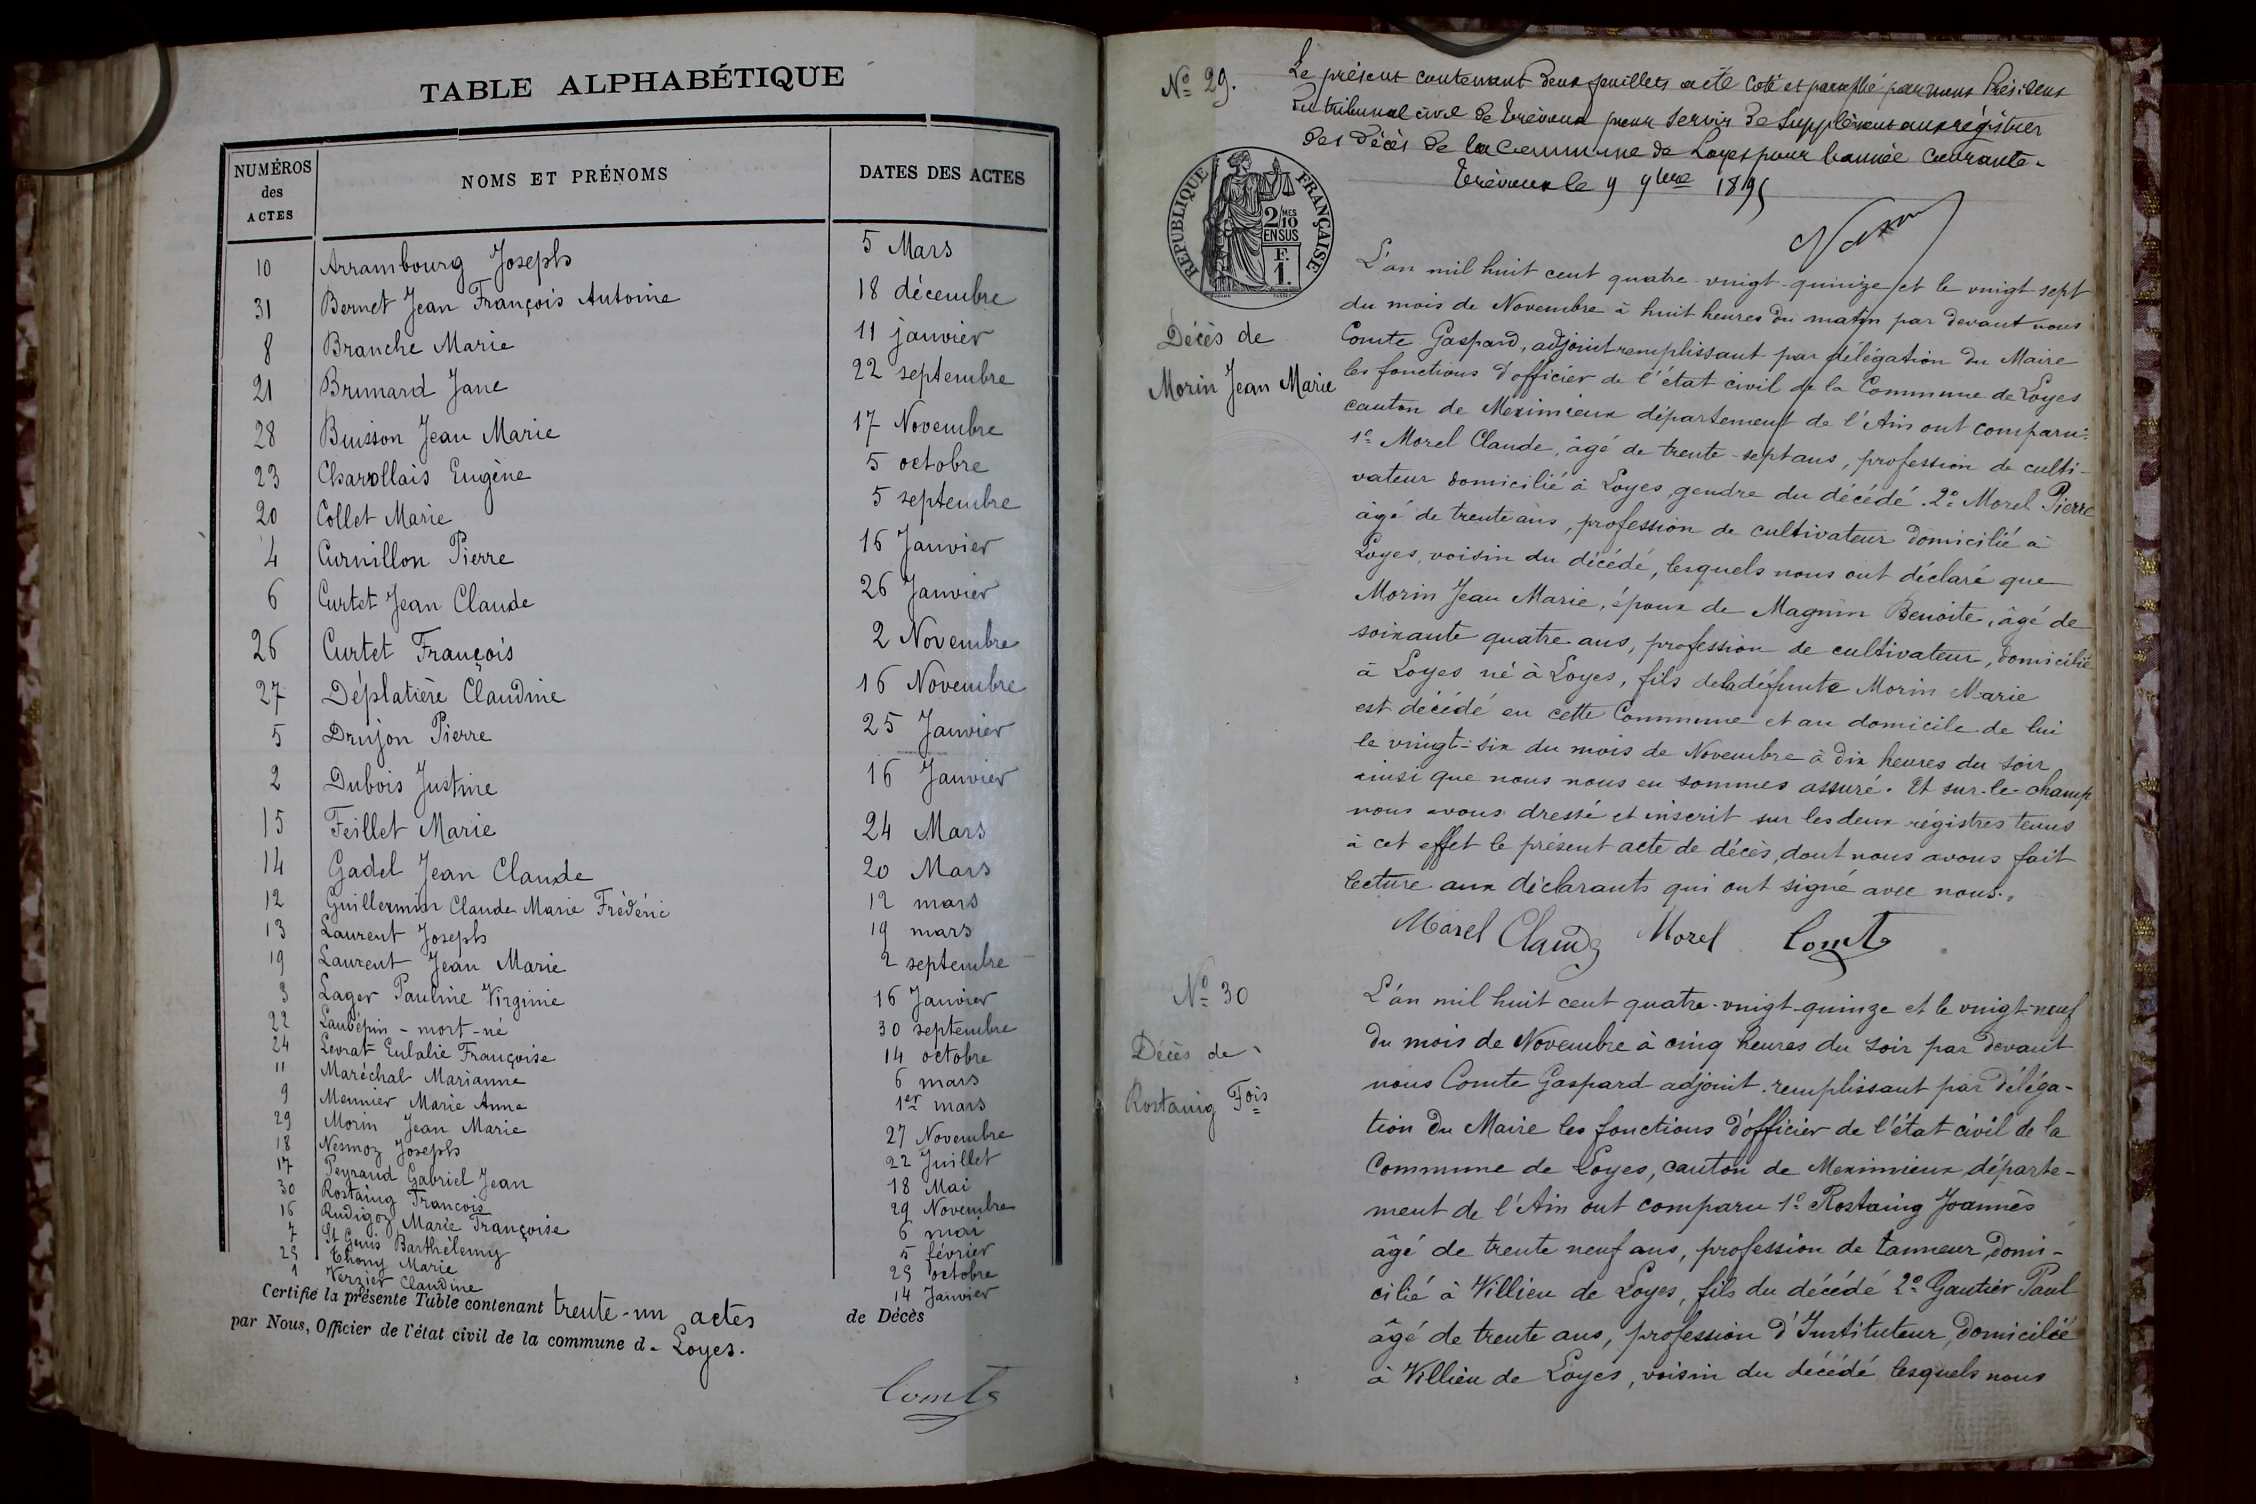 TABLE ALPHABÉTIQUE
NUMÉROS des ACTES NOMS ET PRÉNOMS DATES DES ACTES
10 Arrambourg Joseph 5 Mars
31 Bernet Jean François Antoine 18 décembre
8 Branche Marie 11 janvier
21 Brunard Jane 22 septembre
28 Buisson Jean Marie 17 Novembre
23 Charollais Eugène 5 octobre
20 Collet Marie 5 septembre
4 Curnillon Pierre 16 Janvier
6 Curtet Jean Claude 26 Janvier
26 Curtet François 2 Novembre
27 Déplatière Claudine 16 Novembre
5 Drujon Pierre 25 Janvier
2 Dubois Justine 16 Janvier
15 Feillet Marie 24 Mars
14 Gadel Jean Claude 20 Mars
12 Guillermin Claude Marie Frédéric 12 mars
13 Laurent Joseph 19 mars
19 Laurent Jean Marie 2 septembre
3 Lager Pauline Virginie 16 Janvier
22 Laubépin - mort-né 30 septembre
24 Levrat Eulalie Françoise 14 octobre
11 Maréchal Marianne 6 mars
9 Meunier Marie Anne 1er mars
29 Morin Jean Marie 27 Novembre
18 Nesmoz Joseph 22 Juillet
17 Peyraud Gabriel Jean 18 Mai
30 Rostaing François 29 Novembre
16 Rudigoz Marie Françoise 6 mai
7 St Genis Barthélemy 5 février
25 Thony Marie 25 octobre
1 Verzier Claudine 14 Janvier
Certifié la présente Table contenant trente-un actes de Décès
par Nous, Officier de l'état civil de la commune d. Loyes.
Comte
No 29.
Le présent contenant deux feuillets a été coté et paraphé par nous Président
du tribunal civil de Trévoux pour servir de supplément aux régistres
des Décès de la Commune de Loyes pour l'année courante.
Trévoux le 9 9bre 1895
RÉPUBLIQUE FRANÇAISE
2/10 MES
EN SUS
F.
1.
Décès de
Morin Jean Marie
L'an mil huit cent quatre-vingt-quinze et le vingt sept
du mois de Novembre à huit heures du matin par devant nous
Comte Gaspard, adjoint remplissant par délégation du Maire
les fonctions d'officier de l'état civil de la Commune de Loyes
canton de Meximieux département de l'Ain ont comparu:
1o Morel Claude, âgé de trente-sept ans, profession de culti-
vateur domicilié à Loyes, gendre du décédé. 2o Morel Pierre
âgé de trente ans, profession de cultivateur domicilié à
Loyes, voisin du décédé, lesquels nous ont déclaré que
Morin Jean Marie, époux de Magnin Benoite, âgé de
soixante quatre ans, profession de cultivateur, domicilié
à Loyes né à Loyes, fils de la défunte Morin Marie
est décédé en cette Commune et au domicile de lui
le vingt-six du mois de Novembre à dix heures du soir
ainsi que nous nous en sommes assuré. Et sur-le-champ
nous avons dressé et inscrit sur les deux régistres tenus
à cet effet le présent acte de décès, dont nous avons fait
lecture aux déclarants qui ont signé avec nous.
Morel Claude Morel Comte
No 30
Décès de
Rostaing Fois
L'an mil huit cent quatre-vingt-quinze et le vingt-neuf
du mois de Novembre à cinq heures du soir par devant
nous Comte Gaspard adjoint remplissant par déléga-
tion du Maire les fonctions d'officier de l'état civil de la
Commune de Loyes, canton de Meximieux départe-
ment de l'Ain ont comparu 1o Rostaing Joannès
âgé de trente neuf ans, profession de tanneur, domi-
cilié à Villieu de Loyes, fils du décédé 2o Gautier Paul
âgé de trente ans, profession d'Instituteur, domicilié
à Villieu de Loyes, voisin du décédé lesquels nous